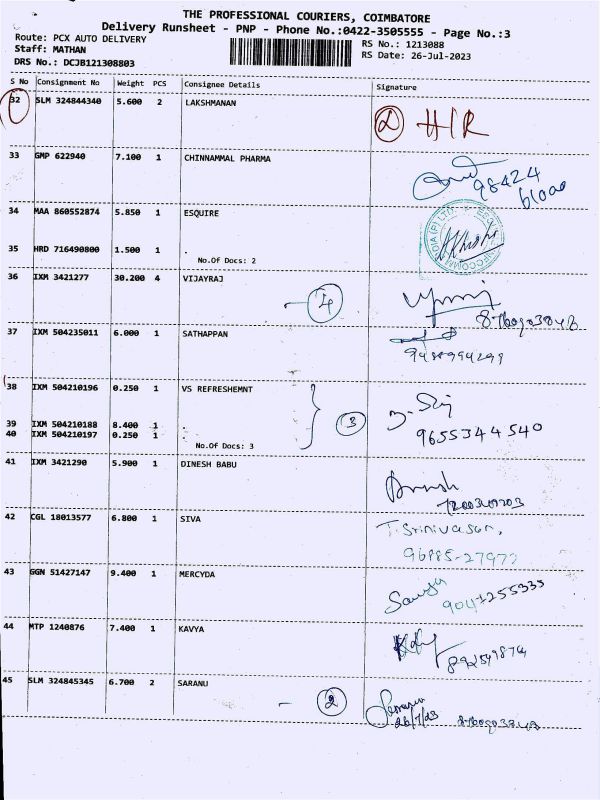 THE PROFESSIONAL COURIERS, COIMBATORE
Delivery Runsheet - PNP - Phone No.:0422-3505555 - Page No.:3
Route: PCX AUTO DELIVERY
RS No.: 1213088
Staff: MATHAN
RS Date: 26-Jul-2023
DRS No.: DCJB121308803
S No Consignment No Weight PCS Consignee Details Signature
32 SLM 324844340 5.600 2 LAKSHMANAN
2 H/R
33 GMP 622940 7.100 1 CHINNAMMAL PHARMA
98424
34 MAA 860552874 5.850 1 ESQUIRE
35 HRD 716490800 1.500 1 .
No.Of Docs: 2
36 IXM 3421277 30.200 4 VIJAYRAJ
- 4
37 IXM 504235011 6.000 1 SATHAPPAN
38 IXM 504210196 0.250 1 VS REFRESHEMNT
3
39 IXM 504210188 8.400 1 .
9655344540
40 IXM 504210197 0.250 1 .
No.Of Docs: 3
41 IXM 3421290 5.900 1 DINESH BABU
42 CGL 18013577 6.800 1 SIVA
T. Srinivasan,
43 GGN 51427147 9.400 1 MERCYDA
44 MTP 1240876 7.400 1 KAVYA
45 SLM 324845345 6.700 2 SARANU
- 2
26/7/23